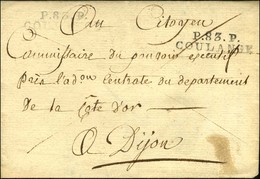 P.83.P.
Au Citoyen
P.83.P.
COULANGE
Commissaire du pouvoir exécutif
près l'adon Centrale du departement
De la Côte d'or
A Dijon